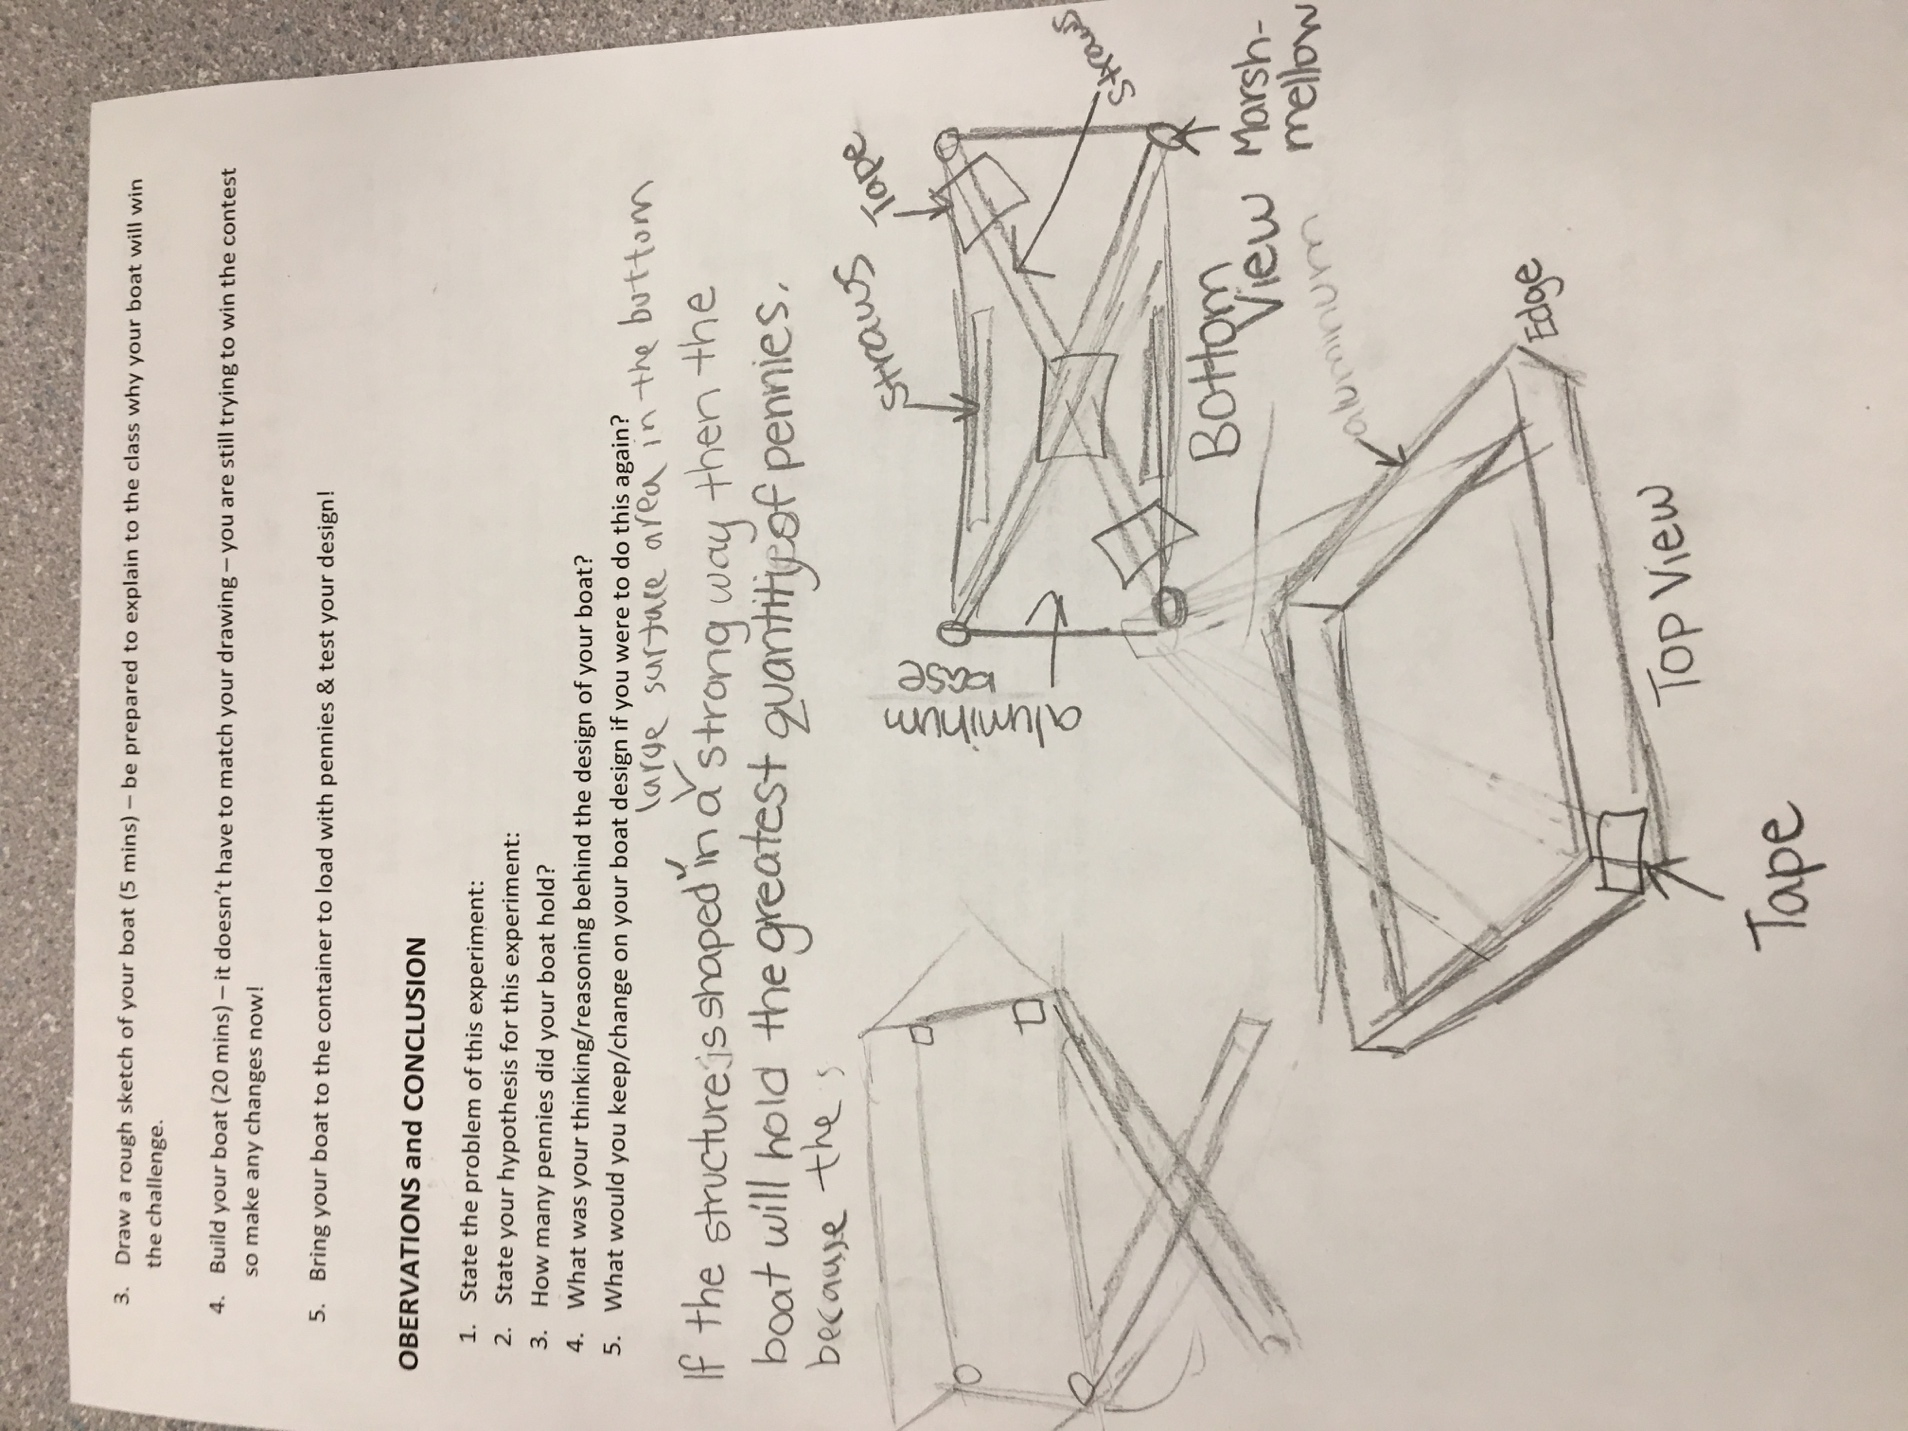 3. Draw a rough sketch of your boat (5 mins) – be prepared to explain to the class why your boat will win
the challenge.
4. Build your boat (20 mins) – it doesn't have to match your drawing – you are still trying to win the contest
so make any changes now!
5. Bring your boat to the container to load with pennies & test your design!
OBERVATIONS and CONCLUSION
1. State the problem of this experiment:
2. State your hypothesis for this experiment:
3. How many pennies did your boat hold?
4. What was your thinking/reasoning behind the design of your boat?
5. What would you keep/change on your boat design if you were to do this again?
large surface area in the bottom
If the structure is shaped in a strong way then the
boat will hold the greatest quantity of pennies.
because the
Straws
Tape
Straws
aluminum
base
Marsh-
mellow
Bottom
View
aluminum
Edge
Top View
Tape